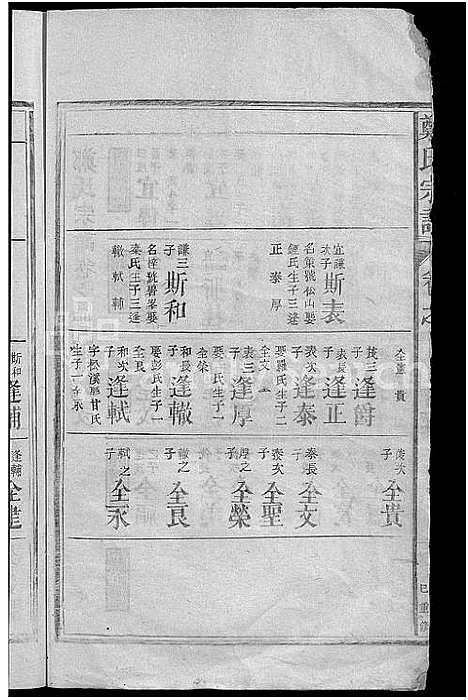 鄭氏宗譜
宜謙
次子
斯表
名策號松山娶
鍾氏生子三逢
正泰厚
謙三
子
斯和
秦氏生子三逢
轍軾輔
全憲貴
茂三
子
逢爵
表長
子
逢正
表次
子
逢泰
娶羅氏生子二
全文
表三
子
逢厚
娶氏生子一
全榮
和長
子
逢轍
娶彭氏生子一
全良
和次
子
逢軾
字松溪娶甘氏
生子一全永
斯和
逢輔
次
子
全貴
泰長
子
全文
泰次
子
全聖
厚之
子
全榮
轍之
子
全良
軾之
子
全永
逢輔